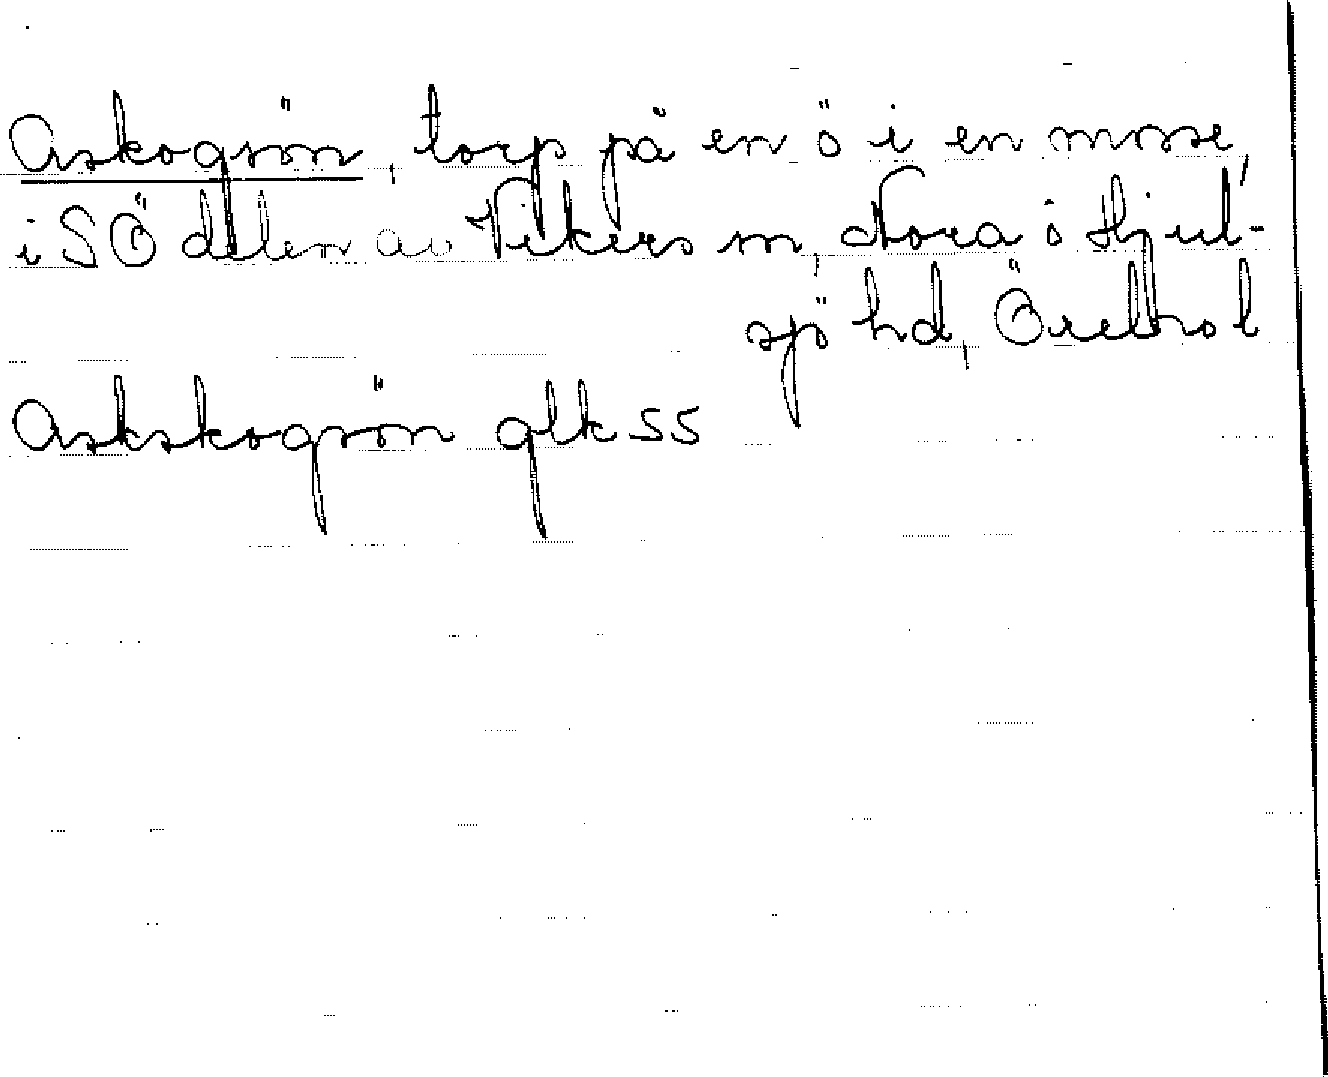 Askogsön, torp på en ö i en mosse,
i SÖ dellen av Vikers sn, Nora o Hjul-
sjö hd, Örebro l
Askskogsön glk 55